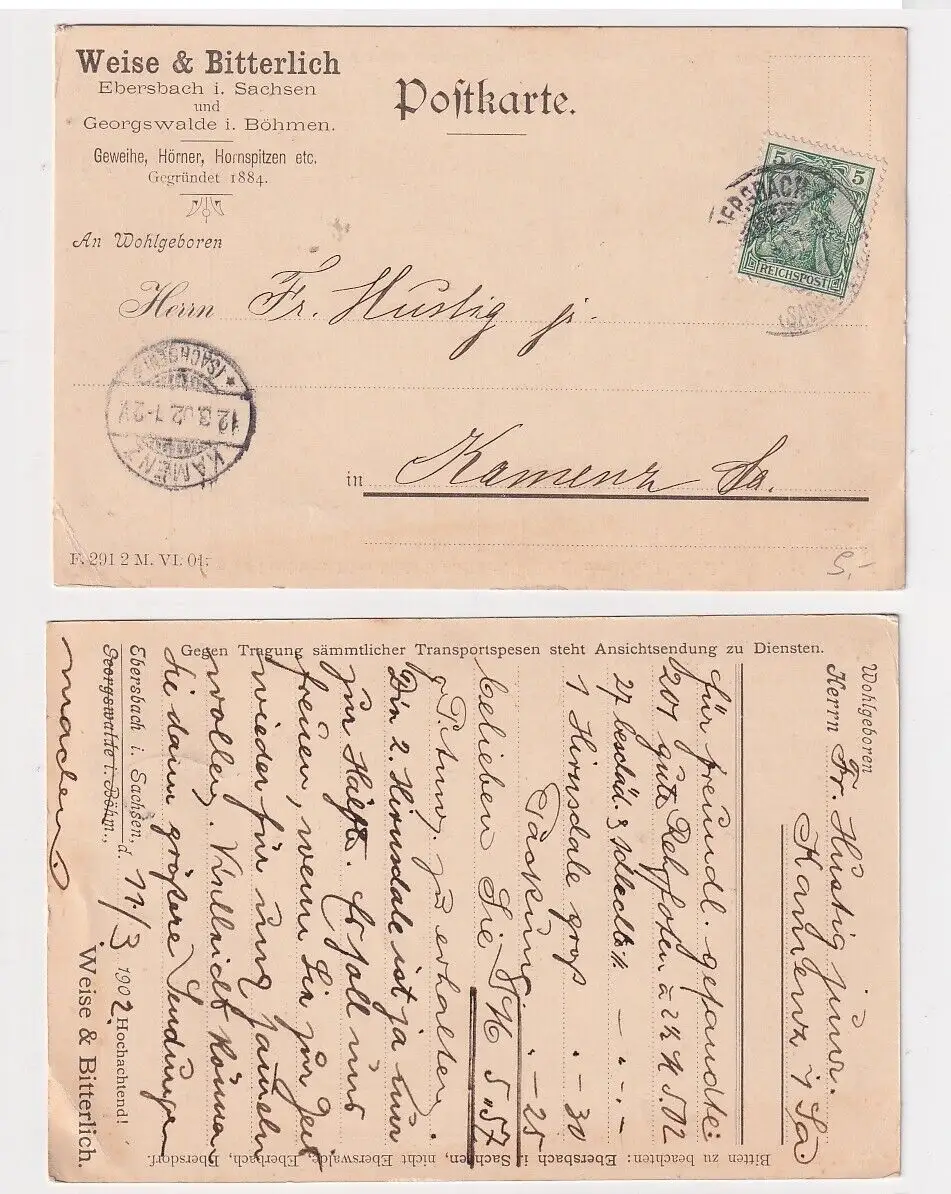 Weise & Bitterlich
Ebersbach i. Sachsen
und
Georgswalde i. Böhmen.
Geweihe, Hörner, Hornspitzen etc.
Gegründet 1884.
Postkarte.
5 5
REICHSPOST
EBERSBACH
(SACHSEN)
An Wohlgeboren
Herrn Fr. Hustig jr.
in Kamenz Sa.
KAMENZ
12.3.02.1-2V.
* (SACHSEN) *
F. 291 2 M. VI. 01.
5,-
Gegen Tragung sämmtlicher Transportspesen steht Ansichtsendung zu Diensten.
Wohlgeboren
Herrn Fr. Hustig junr.
Kamenz i/Sa
für freundl. gesandte:
201 gute Rehpfoten à 2½ M 5.02
27 beschäd. & schlechte - . - . -
1 Hirnsdale groß . - 30
Packung . - 25
belieben Sie M 5.57
z. erhalten.
Die 2. Hirnsdale ist ja nur
zur Hälfte. Es soll uns
freuen, wenn Sie zur Zeit
wieder für uns sammeln
wollen. Vielleicht können
Sie dann größere Sendungen
machen.
Ebersbach i. Sachsen, d. 11/3 1902
Georgswalde i. Böhm.,
Hochachtend!
Weise & Bitterlich.
Bitten zu beachten: Ebersbach i. Sachsen, nicht Eberswalde, Eberbach, Ebersdorf.